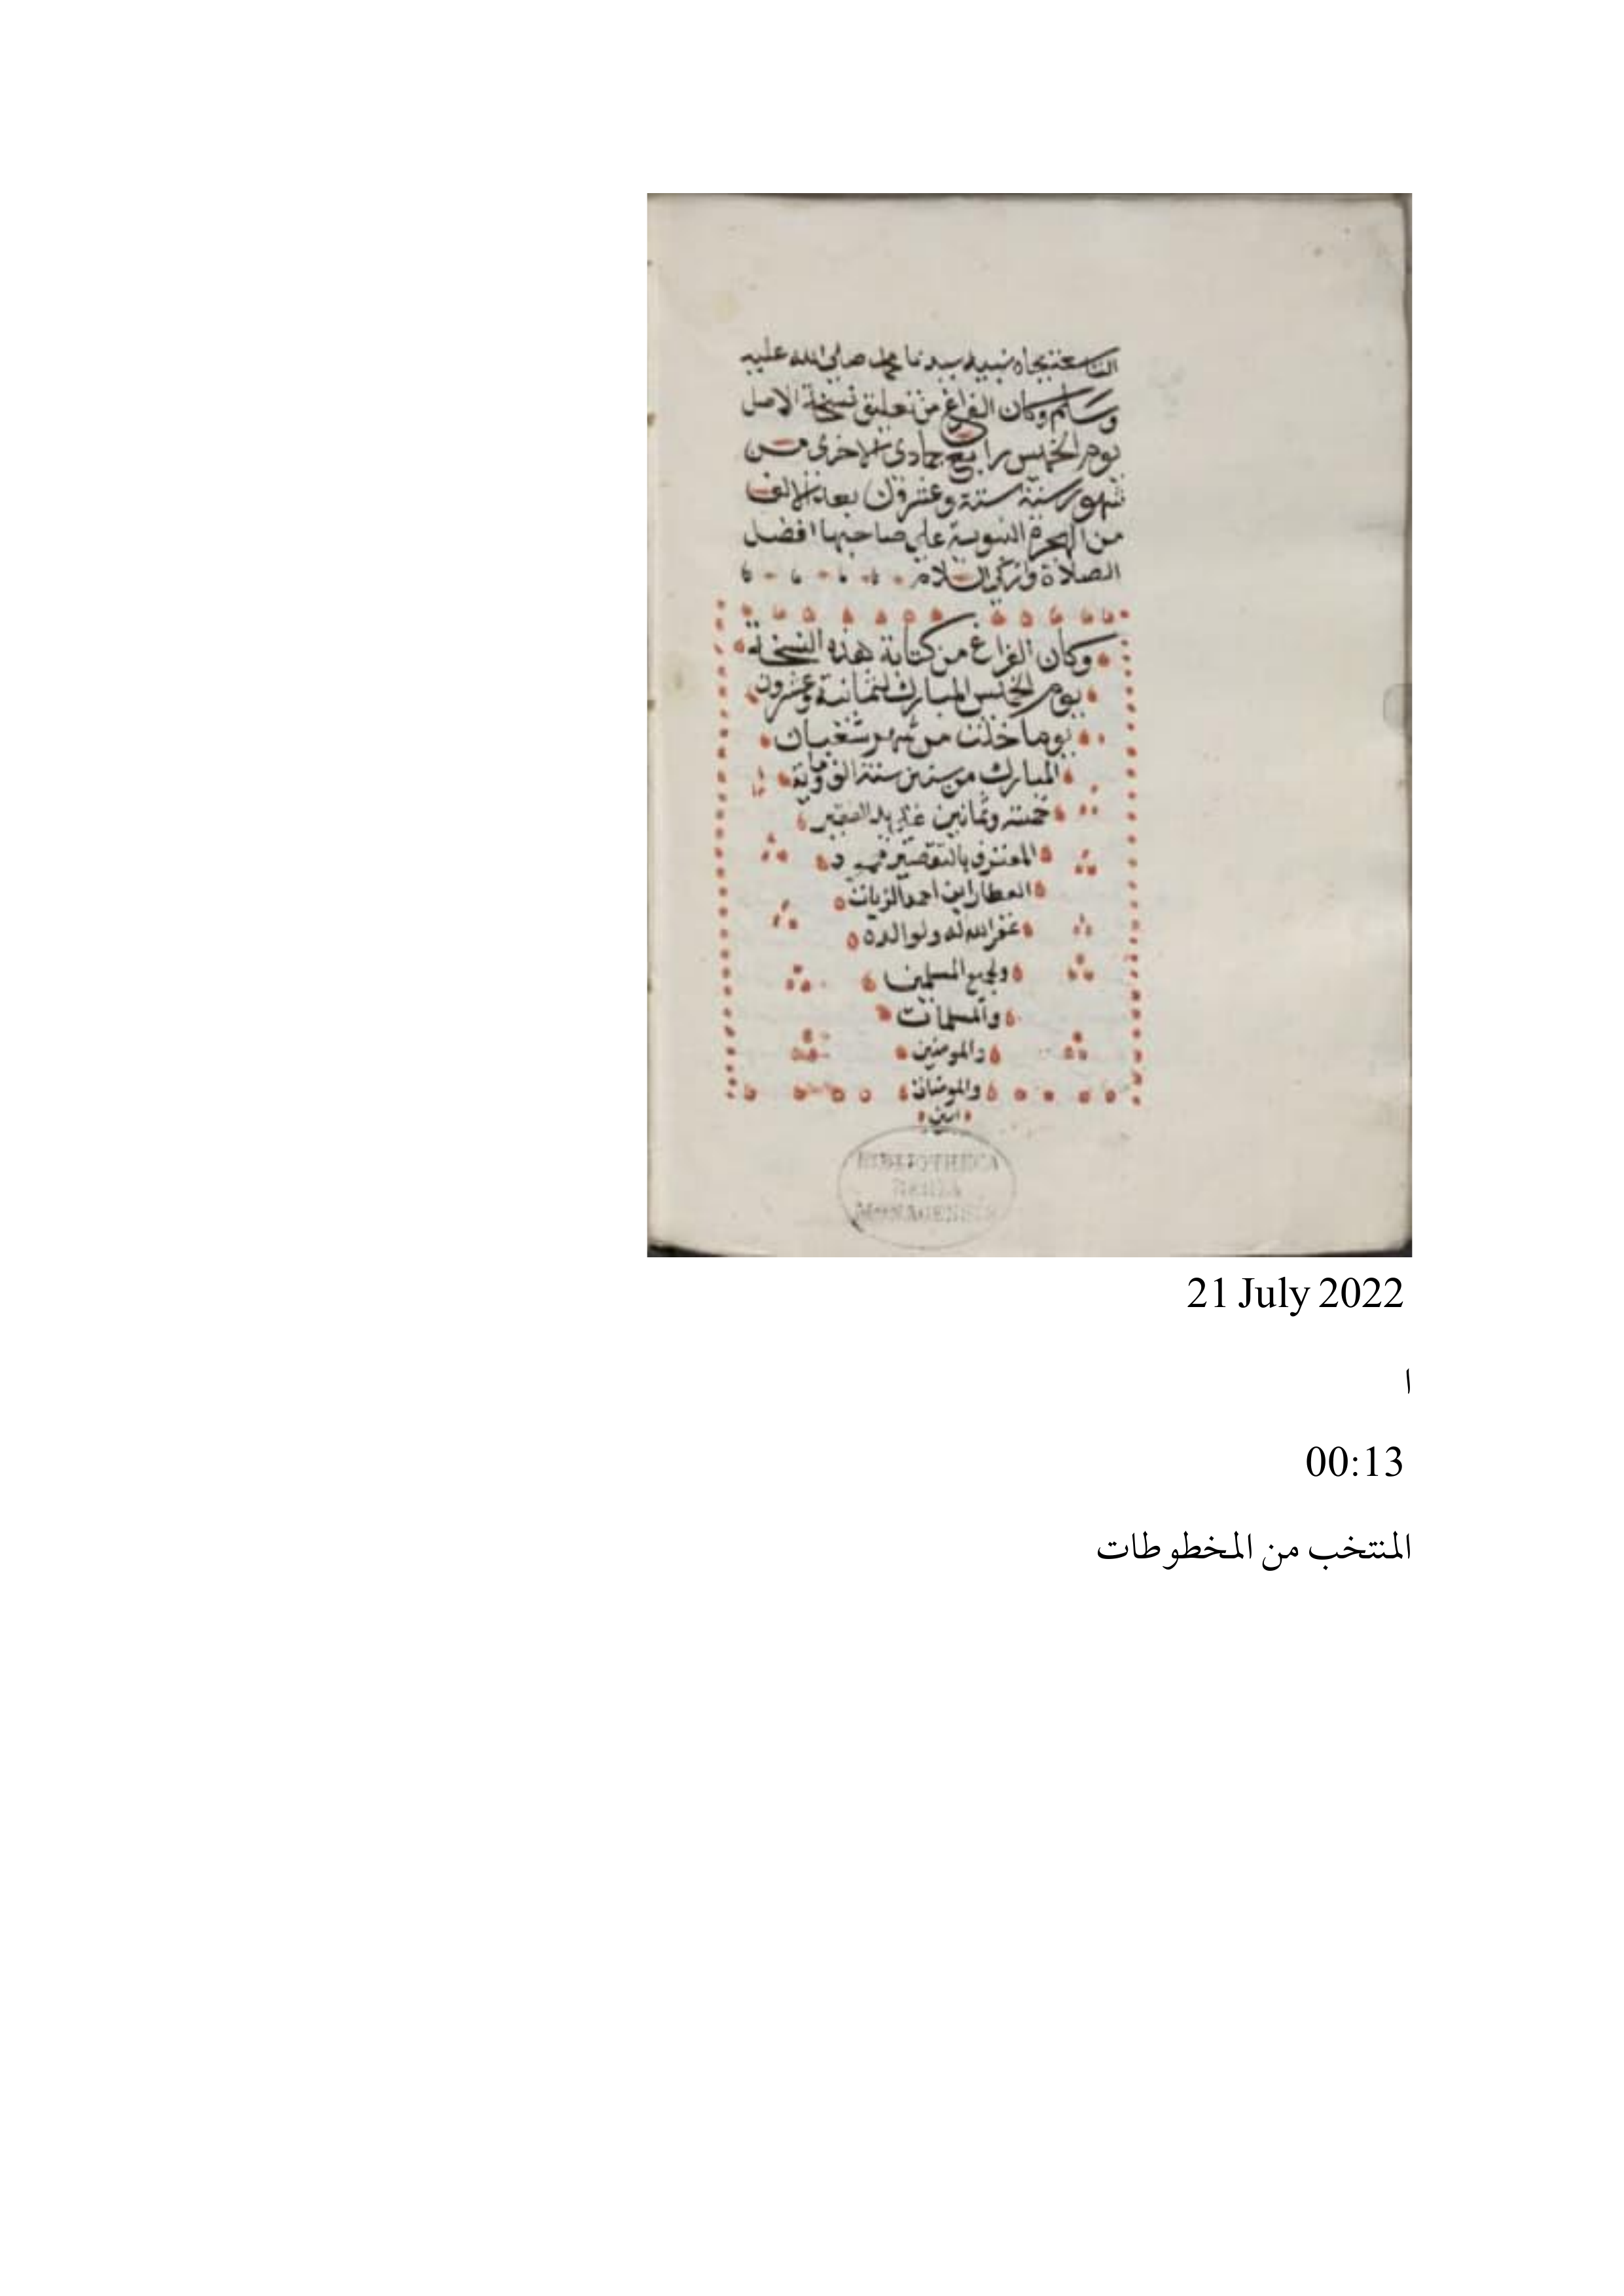 بجاه نبيه سيدنا محمد صلى الله عليه
وسلم وكان الفراغ من تعليق نسخة الاصل
يوم الخميس رابع جمادى الاخرى من
شهور سنة ستة وعشرون بعد الالف
من الهجرة النبوية على صاحبها افضل
الصلاة وازكى السلام
وكان الفراغ من كتابة هذه النسخة
يوم الخميس المبارك لثمانية وعشرون
يوما خلت من شهر شعبان
المبارك من سنين سنة الف وماية
خمسة وثمانين
المعترف بالتقصير
العطار ابن احمد الزيات
غفر الله له ولوالده
ولجميع المسلمين
والمسلمات
والمومنين
والمومنات
امين
BIBLIOTHECA
REGIA
MONACENSIS
21 July 2022
ا
00:13
المنتخب من المخطوطات